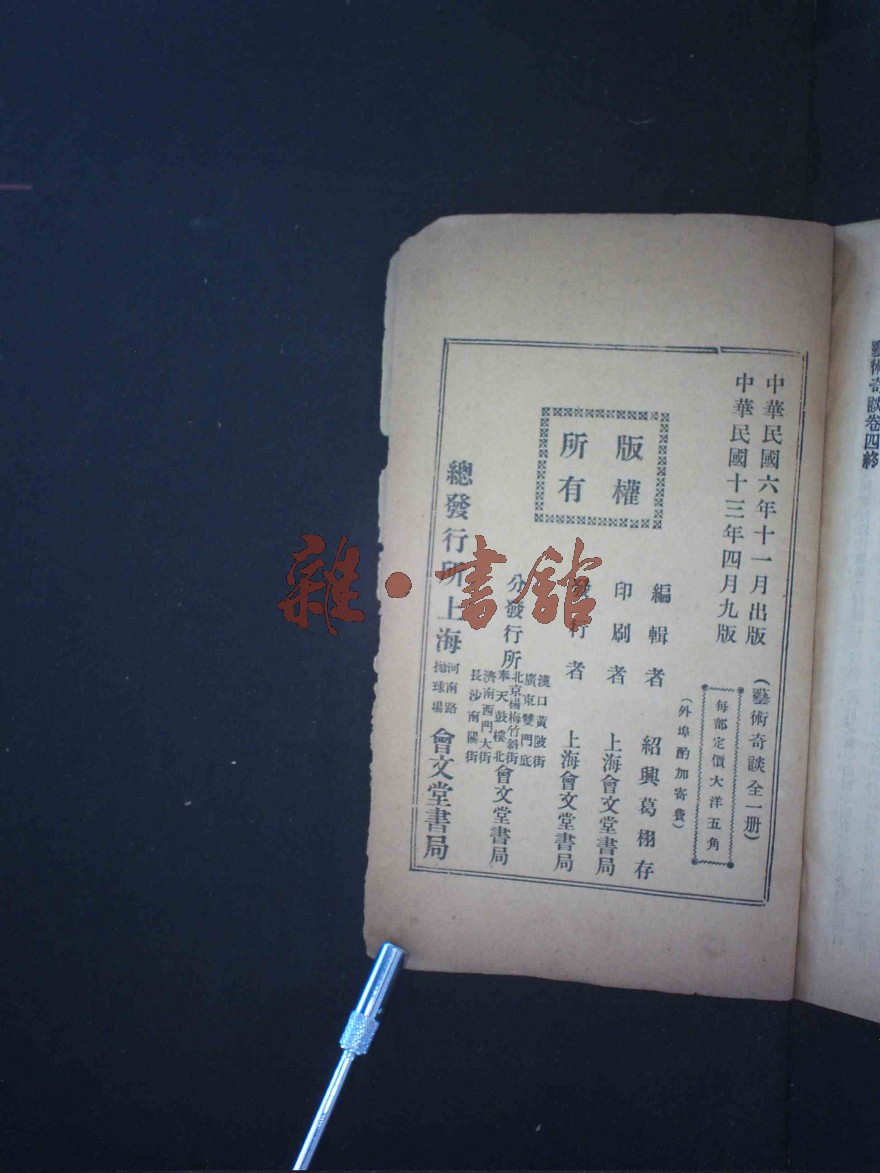 藝術奇談卷四終
中華民國六年十一月出版
中華民國十三年四月九版
(藝術奇談全一册)
每部定價大洋五角
(外埠酌加寄費)
版權
所有
編輯者 紹興葛栩存
印刷者 上海會文堂書局
發行者 上海會文堂書局
分發行所
漢口黃陂街
廣東雙門底
北京楊梅竹斜街
奉天鼓樓北
濟南西門大街
長沙南陽街
會文堂書局
總發行所上海
河南路
拋球場
會文堂書局
雜·書館